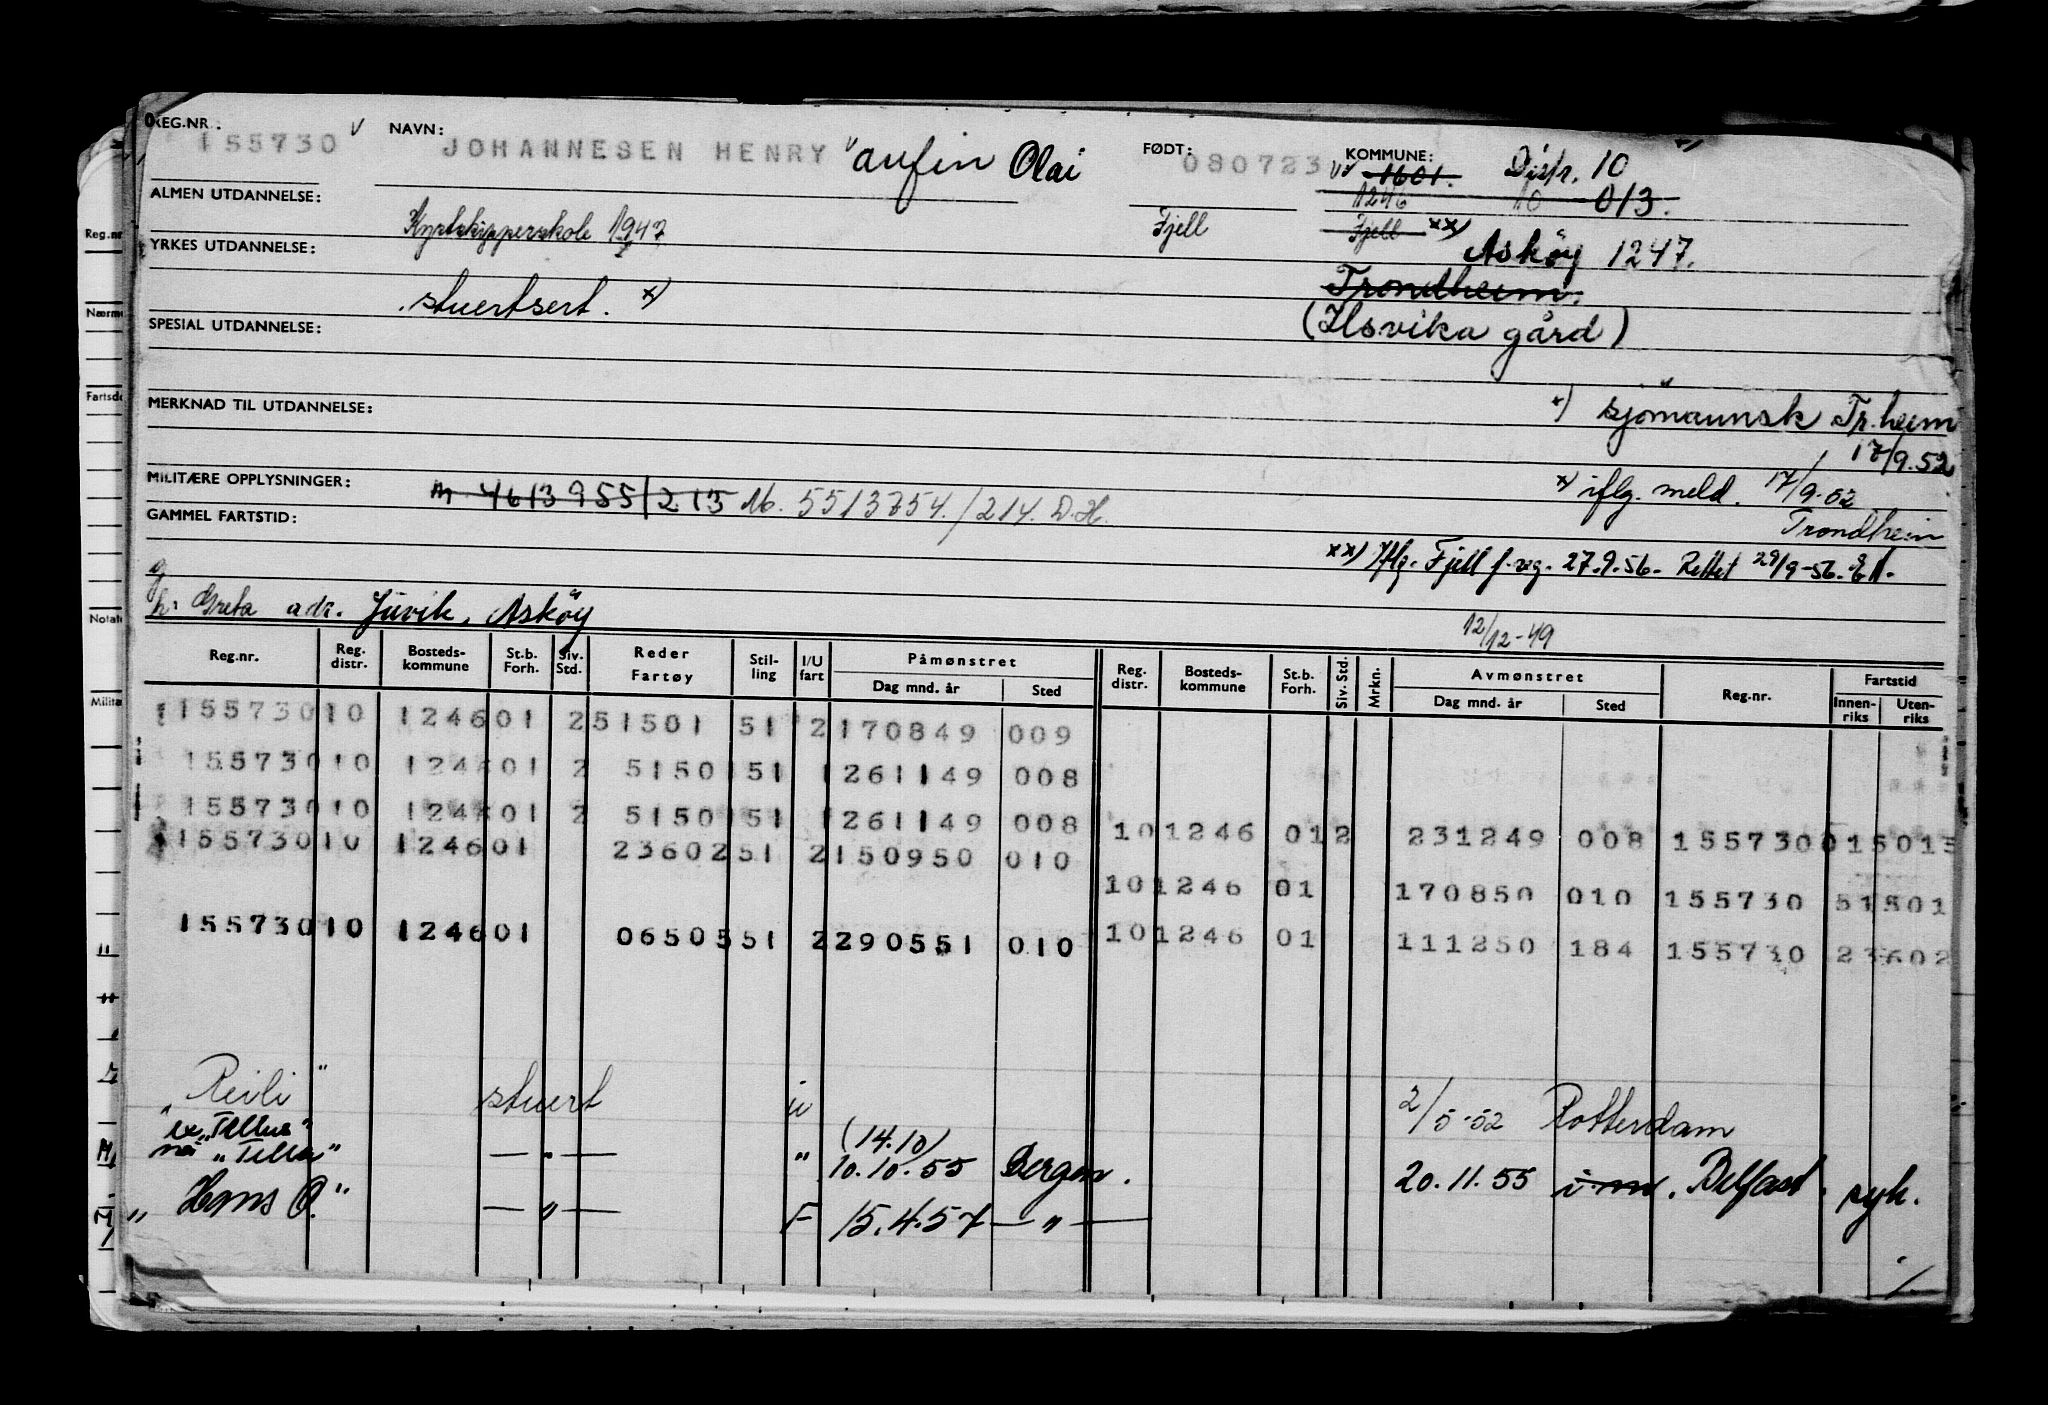 REG.NR.: 155730 V NAVN: JOHANNESEN HENRY "aufin Olai FØDT: 080723 KOMMUNE: 1601. Distr. 10
ALMEN UTDANNELSE: 1246 10 013.
Kystskipperskole 1947 Fjell Fjell xx)
YRKES UTDANNELSE: Asköy 1247.
stuertsert. x) Trondheim.
SPESIAL UTDANNELSE: (Ilsvika gård)
MERKNAD TIL UTDANNELSE: x) sjömannsk Tr.heim
17/9.52
MILITÆRE OPPLYSNINGER: m 4613955/213 M. 5513754./214. D.H. x) iflg. meld. 17/9-52
GAMMEL FARTSTID: Trondheim
xx) Iflg. Fjell f.reg. 27.9.56. Rettet 29/9-56.
g
h: Greta adr. Juvik, Asköy
12/12-49
Reg.nr. Reg. distr. Bosteds-kommune St.b. Forh. Siv. Std. Reder Fartøy Stil-ling I/U fart Påmønstret Dag mnd. år Sted Reg. distr. Bosteds-kommune St.b. Forh. Siv. Std. Mrkn. Avmønstret Dag mnd. år Sted Reg.nr. Fartstid Innen-riks Uten-riks
155730 10 1246 01 2 51501 51 2 170849 009
155730 10 1246 01 2 5150 151 1 261149 008
155730 10 1246 01 2 5150 151 1 261149 008 10 1246 01 2 231249 008 155730 015015
155730 10 1246 01 23602 51 2 150950 010
10 1246 01 170850 010 155730 51501
155730 10 1246 01 06505 51 2 290551 010 10 1246 01 111250 184 155730 23602
Reili" stuert u 2/5-52 Rotterdam
"ex "Tellus"
nå "Tella" — " — " (14.10) 10.10.55 Bergen. 20.11.55 i m. Belfast. syk.
" Hans O." — " — F 15.4.57 — " —
Reg.nr
Nærme
Fartsde
Notate
Militæ